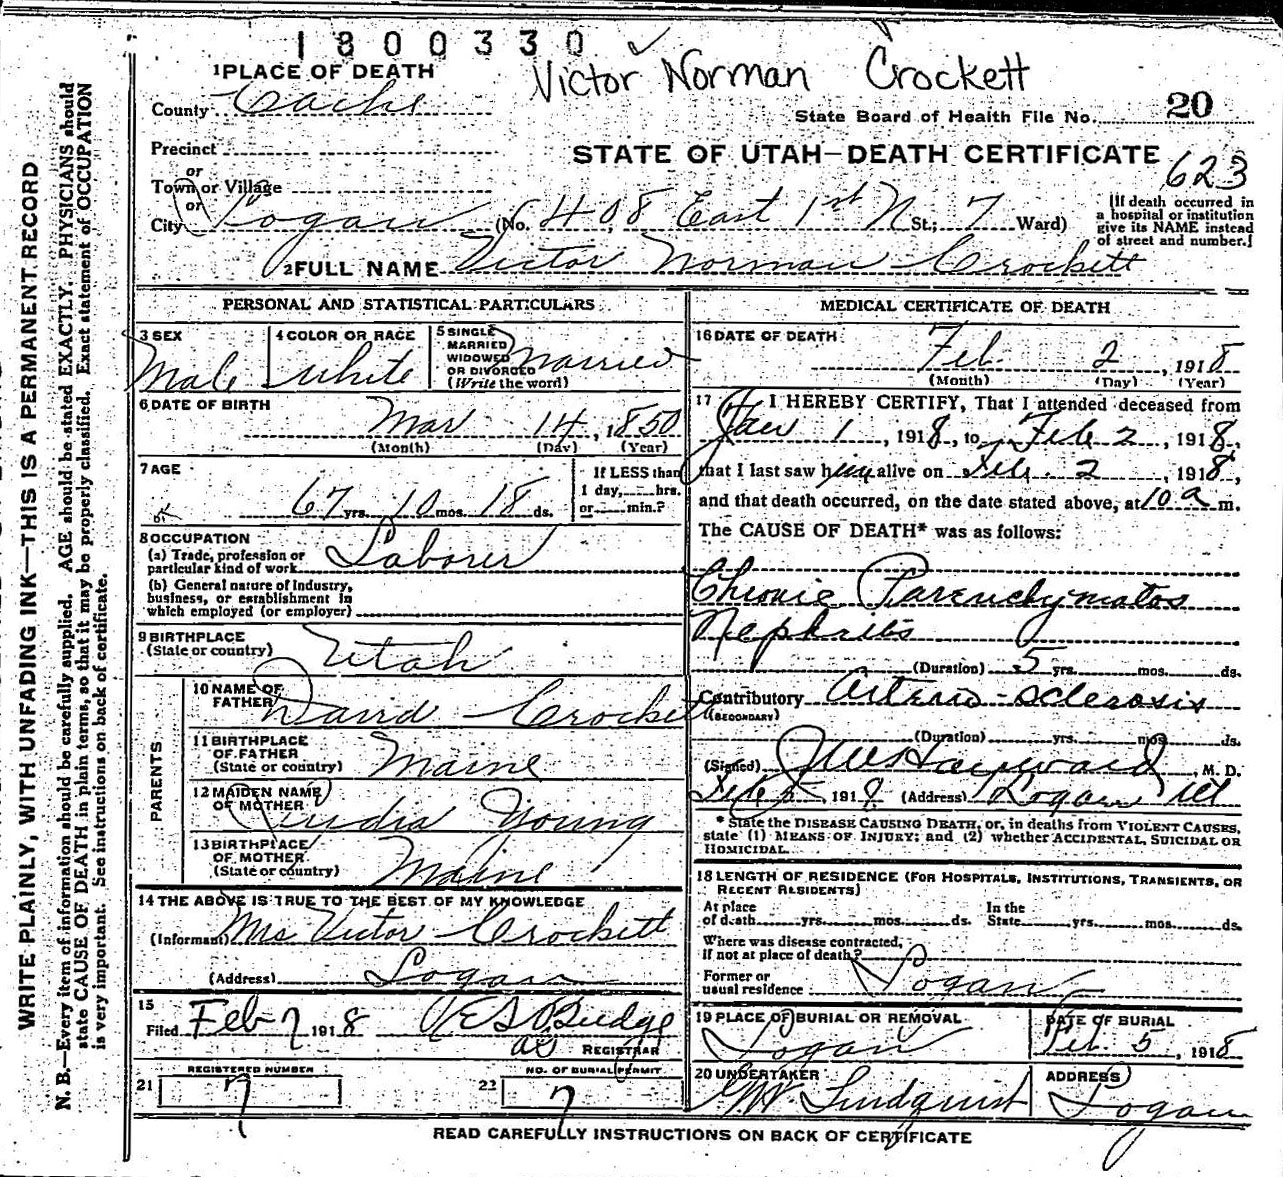 1800330
Victor Norman Crockett
1 PLACE OF DEATH
County Cache
State Board of Health File No. 20
Precinct
STATE OF UTAH—DEATH CERTIFICATE
623
or
Town or Village
or
City Logan (No. 408 East 1st N St.; 7 Ward)
[If death occurred in
a hospital or institution
give its NAME instead
of street and number.]
2 FULL NAME Victor Norman Crockett
PERSONAL AND STATISTICAL PARTICULARS
3 SEX
Male
4 COLOR OR RACE
White
5 SINGLE
MARRIED
WIDOWED
OR DIVORCED
(Write the word)
Married
6 DATE OF BIRTH
Mar 14, 1850
(Month) (Day) (Year)
7 AGE
67 yrs. 10 mos. 18 ds.
If LESS than
1 day, hrs.
or min.?
8 OCCUPATION
(a) Trade, profession or
particular kind of work Laborer
(b) General nature of Industry,
business, or establishment in
which employed (or employer)
9 BIRTHPLACE
(State or country) Utah
PARENTS
10 NAME OF
FATHER David Crockett
11 BIRTHPLACE
OF FATHER
(State or country) Maine
12 MAIDEN NAME
OF MOTHER Lydia Young
13 BIRTHPLACE
OF MOTHER
(State or country) Maine
14 THE ABOVE IS TRUE TO THE BEST OF MY KNOWLEDGE
(Informant) Mrs Victor Crockett
(Address) Logan
15
Filed Feb 7 1918 Budge
REGISTRAR
REGISTERED NUMBER
21 7
NO. OF BURIAL PERMIT
22 7
MEDICAL CERTIFICATE OF DEATH
16 DATE OF DEATH
Feb. 2, 1918
(Month) (Day) (Year)
17 I HEREBY CERTIFY, That I attended deceased from
Jan 1, 1918, to Feb 2, 1918,
that I last saw him alive on Feb. 2, 1918,
and that death occurred, on the date stated above, at 10 a m.
The CAUSE OF DEATH* was as follows:
Chronic Parenchymatos
Nephritis
(Duration) 5 yrs. mos. ds.
Contributory Arterio-sclerosis
(SECONDARY)
(Duration) yrs. mos. ds.
(Signed) Hayward, M. D.
Feb 5, 1918 (Address) Logan Ut
* State the DISEASE CAUSING DEATH, or, in deaths from VIOLENT CAUSES,
state (1) MEANS OF INJURY; and (2) whether ACCIDENTAL, SUICIDAL OR
HOMICIDAL.
18 LENGTH OF RESIDENCE (FOR HOSPITALS, INSTITUTIONS, TRANSIENTS, OR
RECENT RESIDENTS)
At place
of death yrs. mos. ds.
In the
State yrs. mos. ds.
Where was disease contracted,
if not at place of death?
Former or
usual residence Logan
19 PLACE OF BURIAL OR REMOVAL
Logan
DATE OF BURIAL
Feb. 5, 1918
20 UNDERTAKER
Lindquist
ADDRESS
Logan
READ CAREFULLY INSTRUCTIONS ON BACK OF CERTIFICATE
WRITE PLAINLY, WITH UNFADING INK—THIS IS A PERMANENT RECORD
N. B.—Every item of information should be carefully supplied. AGE should be stated EXACTLY. PHYSICIANS should
state CAUSE OF DEATH in plain terms, so that it may be properly classified. Exact statement of OCCUPATION
is very important. See instructions on back of certificate.